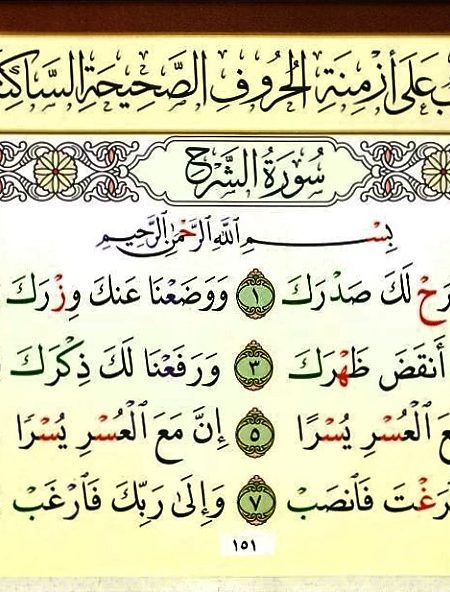 عَلَى أَزْمِنَةِ الْحُرُوفِ الصَّحِيحَةِ
سُورَةُ الشَّرْحِ
بِسْمِ اللَّهِ الرَّحْمَٰنِ الرَّحِيمِ
لَكَ صَدْرَكَ ١ وَوَضَعْنَا عَنكَ وِزْرَكَ
أَنقَضَ ظَهْرَكَ ٣ وَرَفَعْنَا لَكَ ذِكْرَكَ
الْعُسْرِ يُسْرًا ٥ إِنَّ مَعَ الْعُسْرِ يُسْرًا
فَانصَبْ ٧ وَإِلَىٰ رَبِّكَ فَارْغَبْ
١٥١